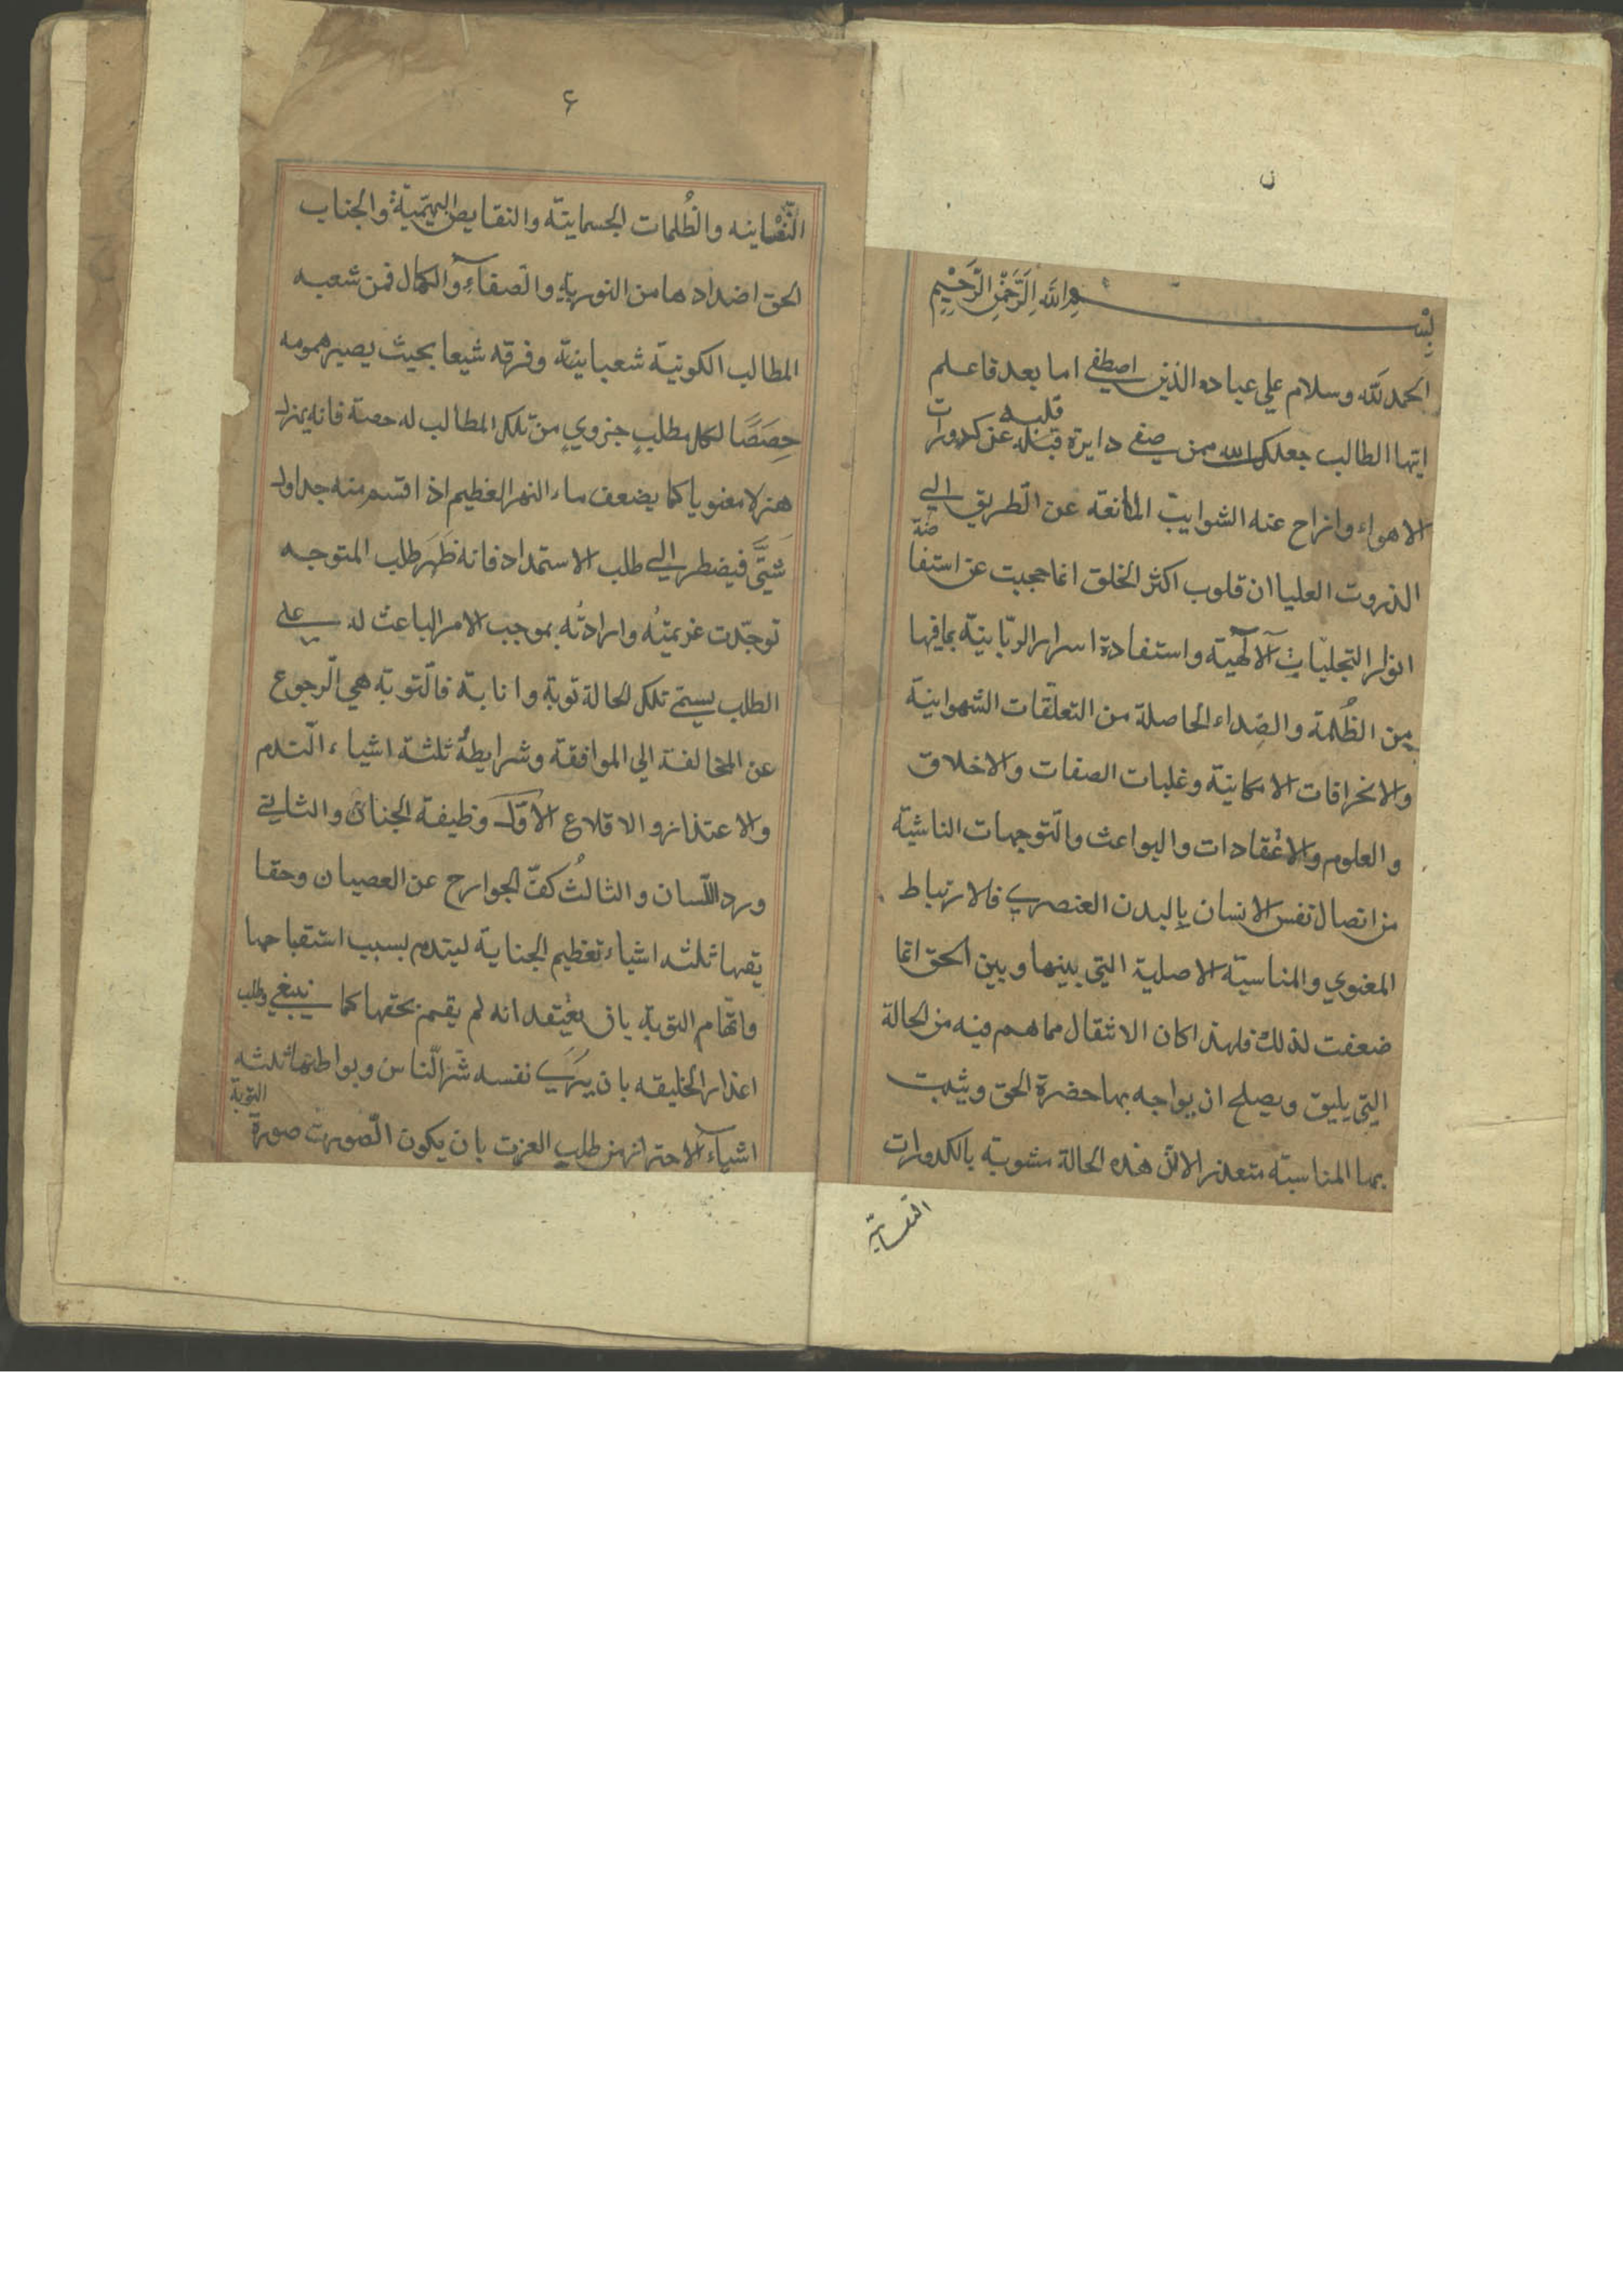 ن
بسم الله الرحمن الرحيم
الحمد لله وسلام علي عباده الذين اصطفي اما بعد فاعلم
ايها الطالب جعلك الله ممن صفي دايرة قبله قلبه عن كدورات
الاهواء وازاح عنه الشوايب المانعه عن الطريق الي
الذروت العليا ان قلوب اكثر الخلق انما حجبت عن استفاضة
انوار التجليات الالهية واستفادة اسرار الربانية بما فيها
من الظلمة والصداء الحاصلة من التعلقات الشهوانية
والانحرافات الامكانية وغلبات الصفات والاخلاق
والعلوم والاعتقادات والبواعث والتوجهات الناشية
من اتصال نفس الانسان بالبدن العنصري فالارتباط
المعنوي والمناسبة الاصلية التي بينها وبين الحق انما
ضعفت لذلك فلهذا كان الانتقال مما هم فيه من الحالة
التي يليق ويصلح ان يواجه بها حضرة الحق ويثبت
بها المناسبة متعذر الان هذه الحالة مشوبة بالكدورات
النفسانية
۶
النفسانيه والظلمات الجسمانية والنقايص البهيمية والجناب
الحق اضدادها من النورية والصفاء والكمال فمن شعبه
المطالب الكونية شعبا بينة وفرقه شيعا بحيث يصير همومه
حصصا لكل مطلب جزوي من تلك المطالب له حصة فانه يهزل
هزلا معنويا كما يضعف ماء النهر العظيم اذا قسم منه جداول
شتي فيضطر الي طلب الاستمداد فانه ظهر طلب المتوجه
توحدت عزيمته وارادته بموجب الامر الباعث له علي
الطلب يسمي تلك الحالة توبة وانابة فالتوبة هي الرجوع
عن المخالفة الي الموافقة وشرايطه ثلثة اشياء الندم
والاعتذار والاقلاع الاول وظيفة الجنان والثاني
ورد اللسان والثالث كف الجوارح عن العصيان وحقا
يقها ثلثه اشياء تعظيم الجناية ليتدم بسبب استقباحها
واتهام التوبة بان يعتقد انه لم يقم بحقها كما ينبغي وطلب
اعذار الخليقه بان يري نفسه شر الناس وبواطنها ثلثه
اشياء الاحتراز من طلب العزت بان يكون الصورت صورة التوبة